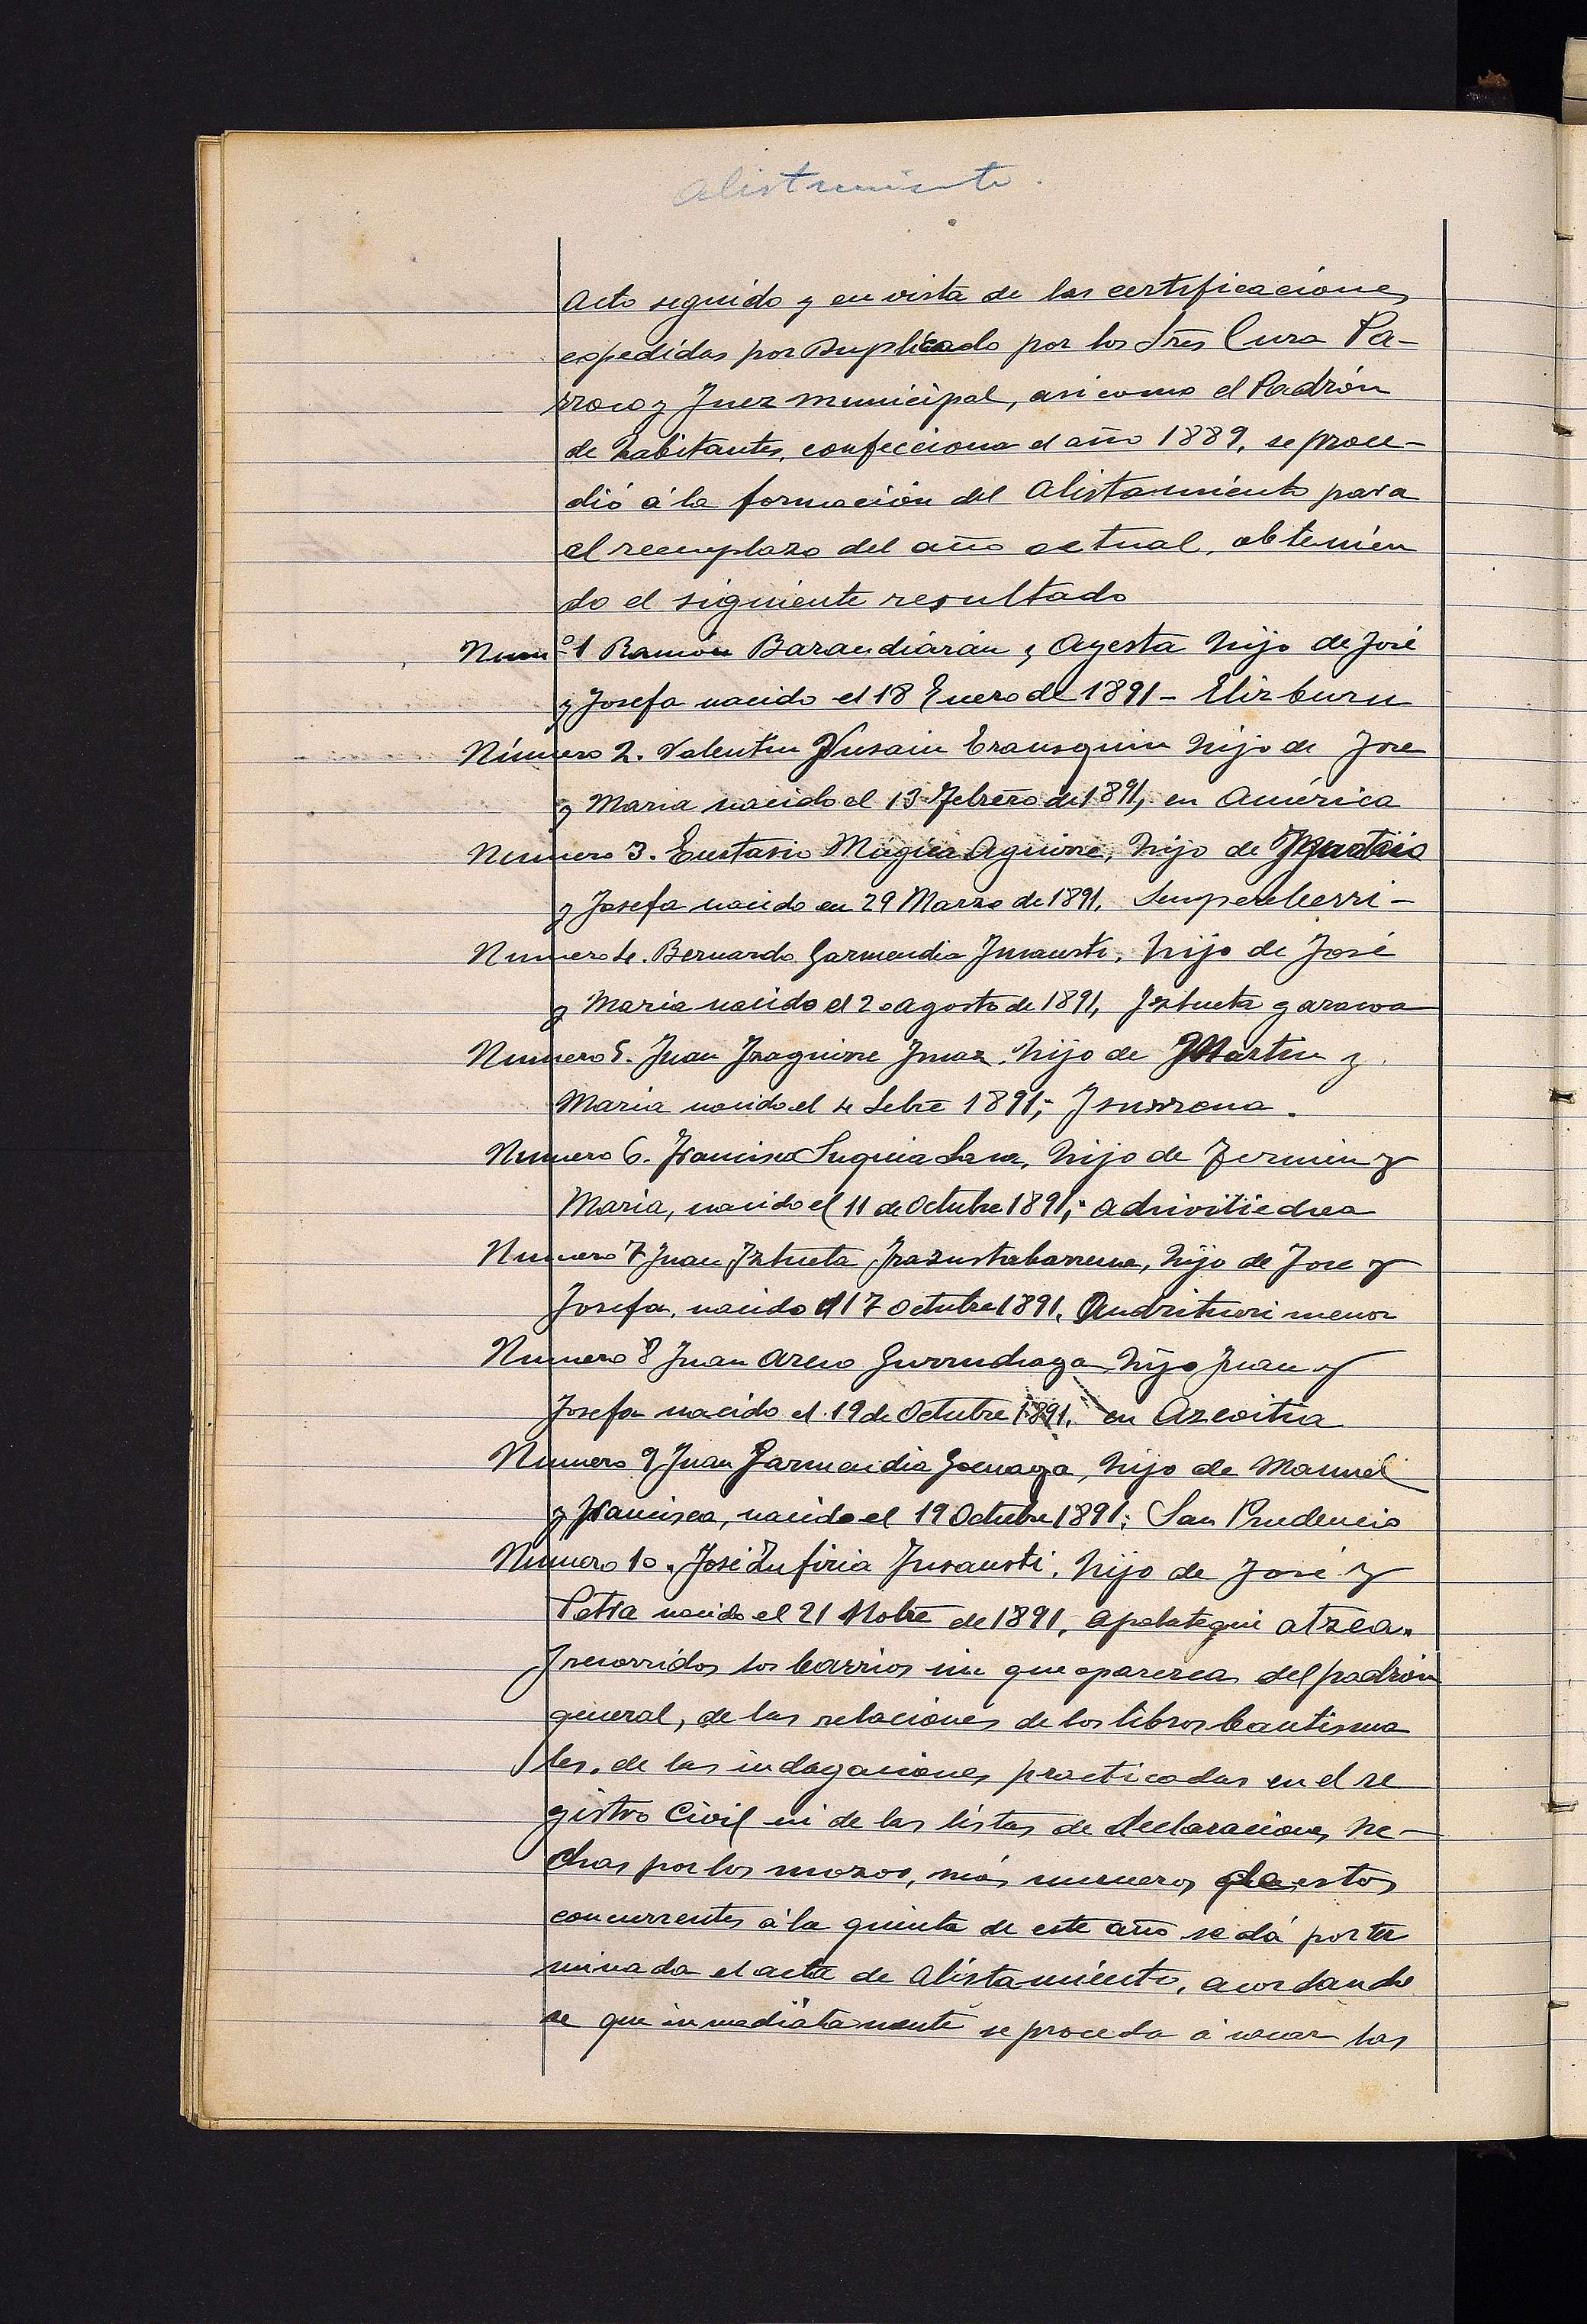 Alistamiento.
Acto seguido y en vista de las certificaciones
espedidas por Duplicado por los Sres Cura Pa-
rroco y Juez municipal, asi como el Padrón
de habitantes, confecciona el año 1889, se proce-
dió á la formación del Alistamiento para
el reemplazo del año actual, obtenien
do el siguiente resultado
Num.º 1 Ramón Barandiarán y Ayesta hijo de José
y Josefa nacido el 18 Enero de 1891 - Elizburu
Número 2. Valentin Ynsain Erausquin hijo de Jose
y Maria nacido el 13 Febrero de 1891, en América
Numero 3. Eustasio Múgica Aguirre, hijo de
y Josefa nacido en 29 Marzo de 1891. Sempereberri -
Numero 4. Bernardo Garmendia Ynsausti, hijo de José
y Maria nacido el 20 agosto de 1891, Yztueta garacoa
Numero 5. Juan Yzaguirre Ymaz, hijo de Martin y
Maria nacido el 4 Sebre 1891;
Numero 6. Francisco Suquia Lasa, hijo de Fermin y
Maria, nacido el 11 de Octubre 1891;
Numero 7 Juan Yztueta Yrazustabarrena, hijo de Jose y
Josefa, nacido el 17 octubre 1891. menor
Numero 8 Juan Aseo Gurruchaga hijo Juan y
Josefa nacido el 19 de Octubre 1891, en Azcoitia
Numero 9 Juan Garmendia Goenaga, hijo de Manuel
y Francisca, nacido el 19 Octubre 1891; San Prudencio
Numero 10. José Zufiria Ynsausti, hijo de José y
Petra nacido el 21 Nobre de 1891, Apalategui atzea.
Y recorridos los barrios sin que aparezca del padrón
general, de las relaciones de los libros bautisma
les, de las indagaciones practicadas en el re
gistro Civil ni de las listas de declaraciones he-
chas por los mozos, más numeros de estos
concurrentes á la quinta de este año se dá por ter
minada el acta de Alistamiento, acordando
se que inmediatamente se proceda á sacar las